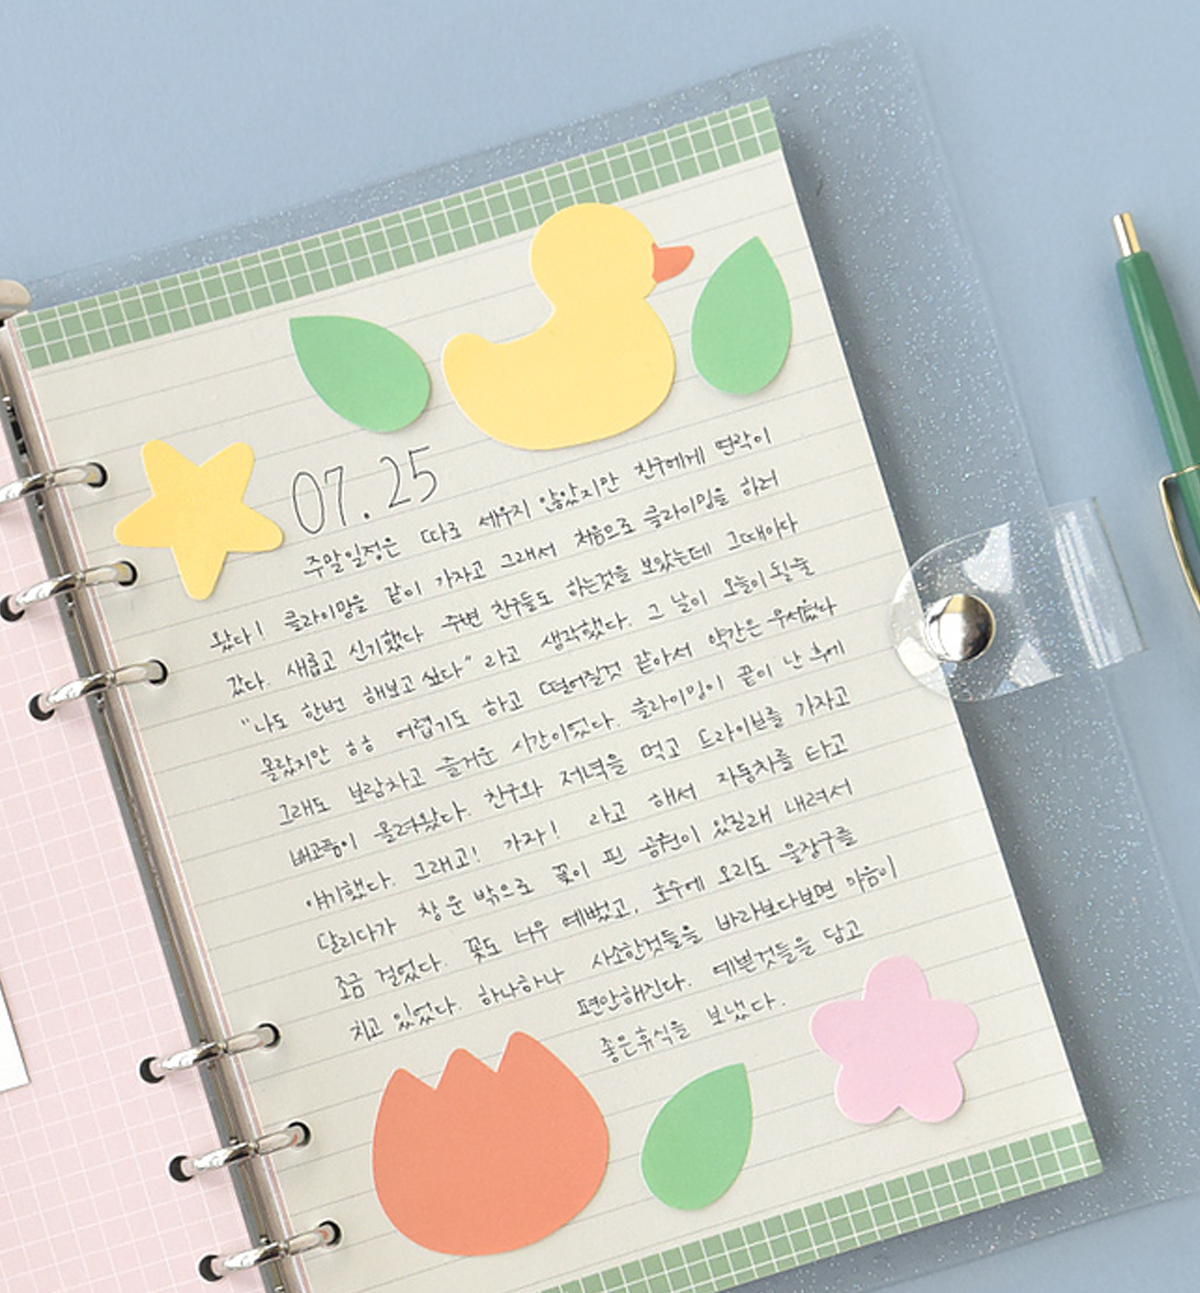 07.25
주말일정은 따로 세우지 않았지만 친구에게 연락이
왔다! 클라이밍을 같이 가자고 그래서 처음으로 클라이밍을 하러
갔다. 새롭고 신기했다 주변 친구들도 하는것을 보았는데 그때마다
"나도 한번 해보고 싶다" 라고 생각했다. 그 날이 오늘이 될줄
몰랐지만 ㅎㅎ 어렵기도 하고 떨어질것 같아서 약간은 무서웠다
그래도 보람차고 즐거운 시간이었다. 클라이밍이 끝이 난 후에
배고픔이 몰려왔다. 친구와 저녁을 먹고 드라이브를 가자고
얘기했다. 그래고! 가자! 라고 해서 자동차를 타고
달리다가 창문 밖으로 꽃이 핀 공원이 있길래 내려서
조금 걸었다. 꽃도 너무 예뻤고, 호수에 오리도 물장구를
치고 있었다. 하나하나 사소한것들을 바라보다보면 마음이
편안해진다. 예쁜것들을 담고
좋은휴식을 보냈다.